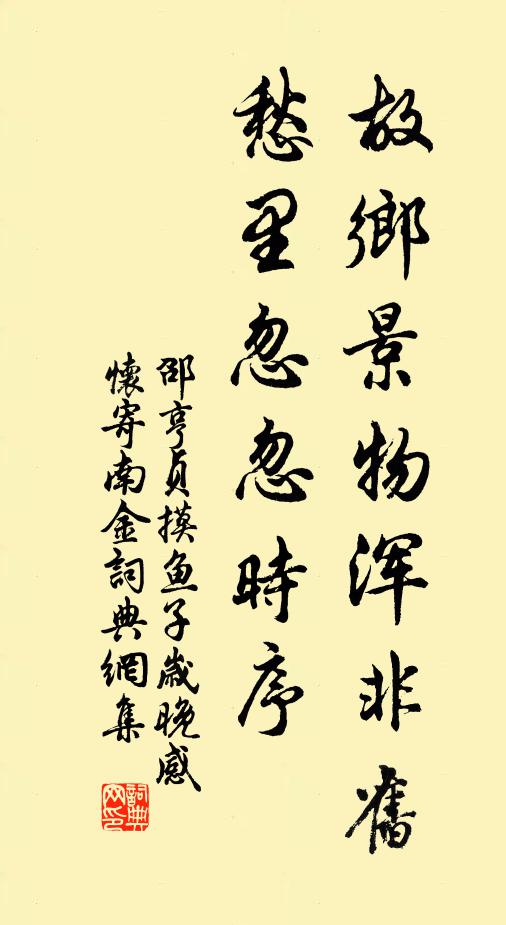 故鄉景物浑非舊
愁里忽忽時序
邵亨貞摸鱼子歲晚感
懷寄南金詞典網集
詞典网印